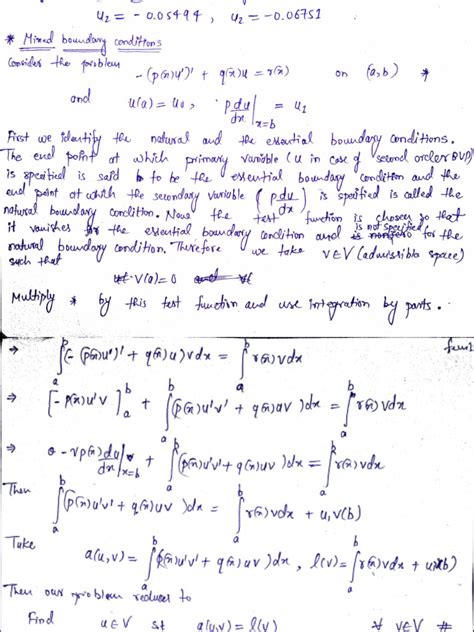 u₂ = -0.05494 , u₂ = -0.06751
* Mixed boundary conditions
Consider the problem
-(p(x)u')' + q(x)u = r(x) on (a,b) *
and u(a) = u₀ , p du/dx |x=b = u₁
First we identify the natural and the essential boundary conditions.
The end point at which primary variable (u in case of second order BVP)
is specified is said to be the essential boundary condition and the
end point at which the secondary variable (p du/dx) is specified is called the
natural boundary condition. Now the test function is chosen so that
it vanishes for the essential boundary condition and is not specified for the
natural boundary condition. Therefore we take v∈V (admissible space)
such that
V(a)=0
Multiply * by this test function and use integration by parts.
⇒ ∫ₐᵇ (-(p(x)u')' + q(x)u) v dx = ∫ₐᵇ r(x) v dx
⇒ [-p(x)u'v]ₐᵇ + ∫ₐᵇ (p(x)u'v' + q(x)uv) dx = ∫ₐᵇ r(x) v dx
⇒ 0 - v p(x) du/dx |x=b + ∫ₐᵇ (p(x)u'v' + q(x)uv) dx = ∫ₐᵇ r(x) v dx
Then
∫ₐᵇ (p(x)u'v' + q(x)uv) dx = ∫ₐᵇ r(x) v dx + u₁v(b)
Take
a(u,v) = ∫ₐᵇ (p(x)u'v' + q(x)uv) dx , l(v) = ∫ₐᵇ r(x) v dx + u₁v(b)
Then our problem reduces to
Find u∈V st a(u,v) = l(v) ∀ v∈V #